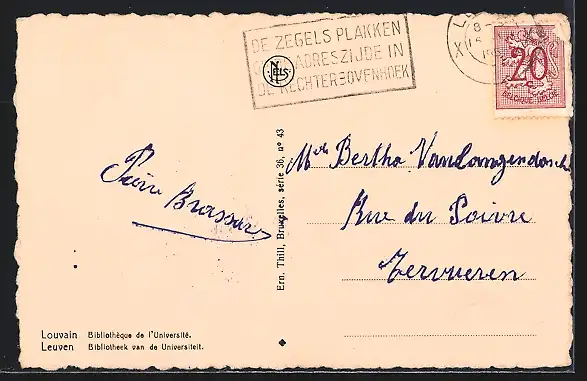 DE ZEGELS PLAKKEN
ADRESZIJDE IN
DE RECHTERBOVENHOEK
NELS
X
20
BELGIQUE BELGIE
Ern. Thill, Bruxelles, série 36, n° 43
Melle Bertha Vanlangendonck
Rue du Poivre
Tervueren
Louvain Bibliothèque de l'Université.
Leuven Bibliotheek van de Universiteit.